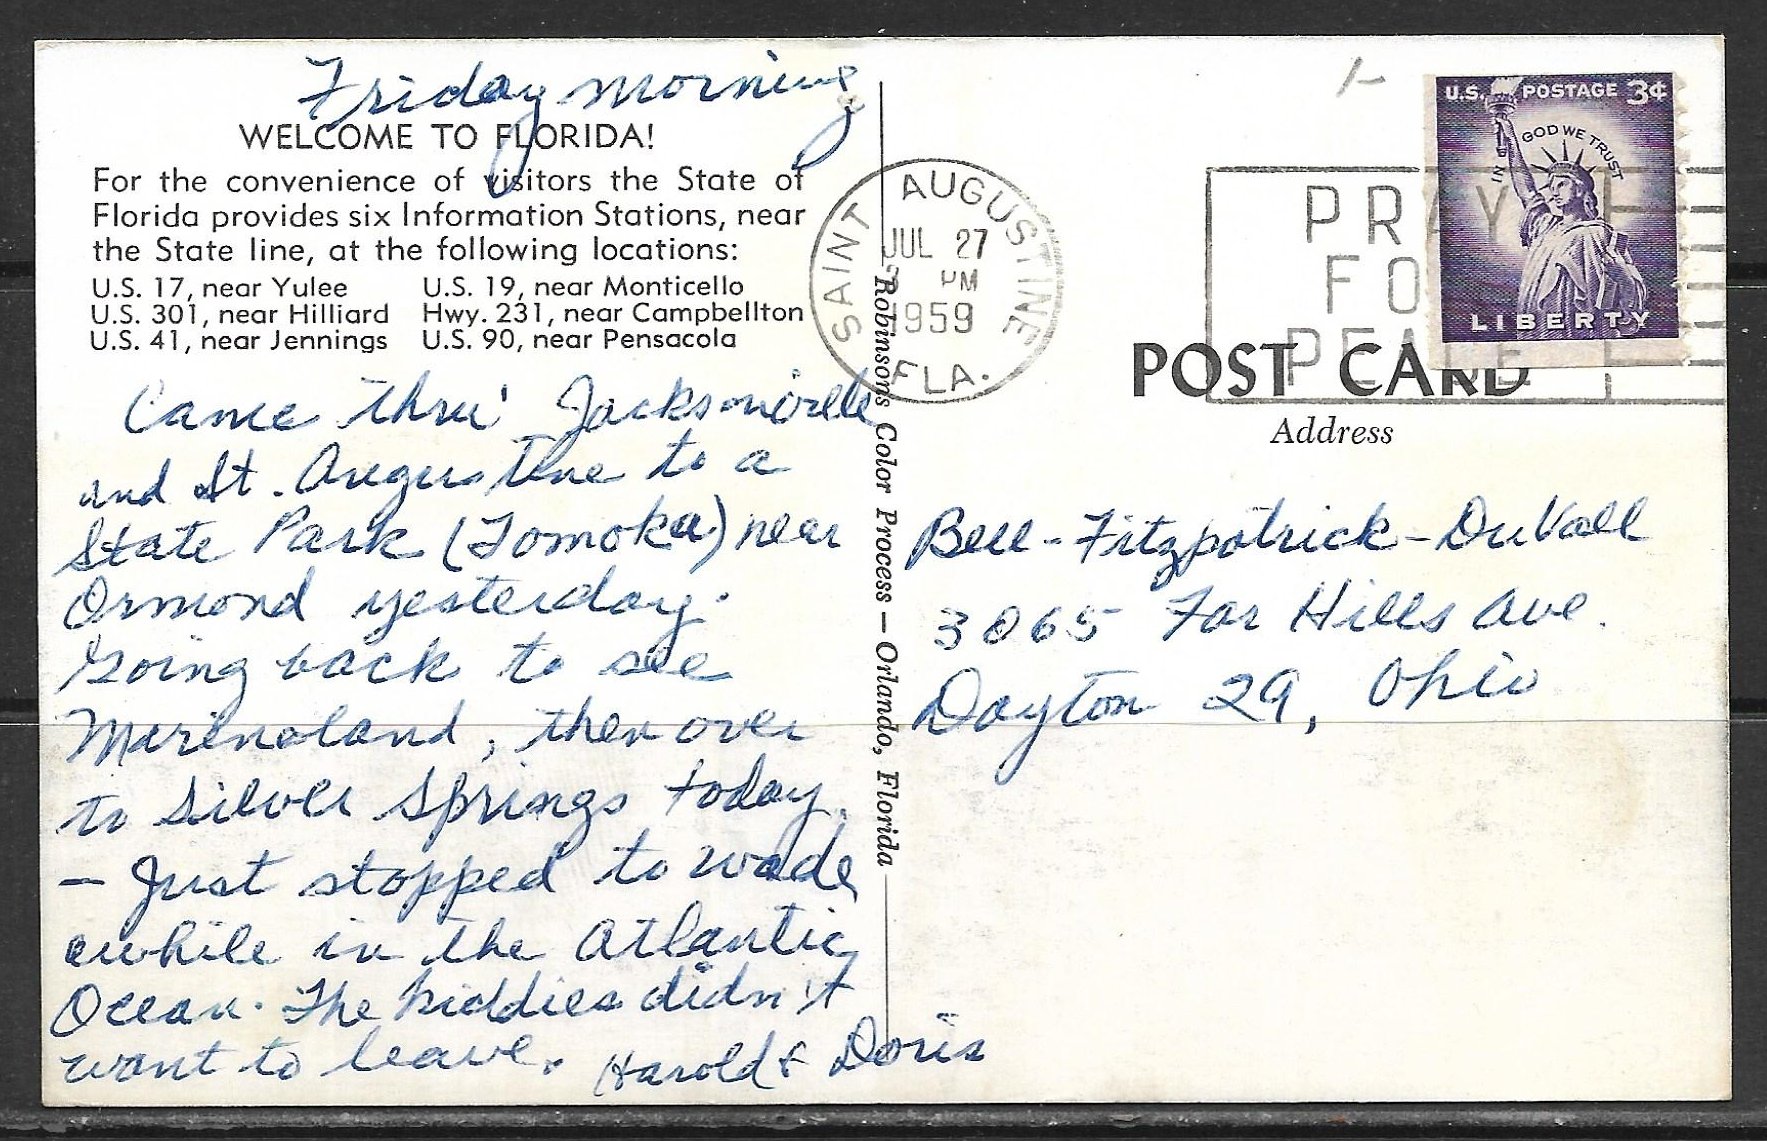 Friday morning
WELCOME TO FLORIDA!
For the convenience of visitors the State of
Florida provides six Information Stations, near
the State line, at the following locations:
U.S. 17, near Yulee U.S. 19, near Monticello
U.S. 301, near Hilliard Hwy. 231, near Campbellton
U.S. 41, near Jennings U.S. 90, near Pensacola
Came thru' Jacksonville
and St. Augustine to a
State Park (Tomoka) near
Ormond yesterday.
Going back to see
Marineland, then over
to Silver Springs today.
— Just stopped to wade
awhile in the Atlantic
Ocean. The kiddies didn't
want to leave.
Harold & Doris
Robinson's Color Process — Orlando, Florida
SAINT AUGUSTINE
JUL 27
PM
1959
FLA.
PRAY
FOR
PEACE
U.S. POSTAGE 3¢
IN GOD WE TRUST
LIBERTY
POST CARD
Address
Bell-Fitzpatrick-DuVall
3065 Far Hills Ave.
Dayton 29, Ohio